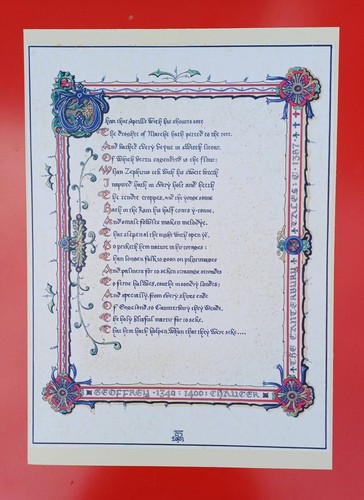 Whan that Aprille with his shoures sote
The droghte of Marche hath perced to the rote,
And bathed every veyne in swich licour,
Of which vertu engendred is the flour;
Whan Zephirus eek with his swete breeth
Inspired hath in every holt and heeth
The tendre croppes, and the yonge sonne
Hath in the Ram his half cours y-ronne,
And smale fowles maken melodye,
That slepen al the night with open yë,
So priketh hem nature in hir corages:
Than longen folk to goon on pilgrimages
And palmers for to seken straunge strondes
To ferne halwes, couthe in sondry londes;
And specially, from every shires ende
Of Engelond, to Caunterbury they wende,
The holy blisful martir for to seke,
That hem hath holpen, whan that they were seke....
GEOFFREY · 1340 : 1400 : CHAUCER
THE CANTERBURY TALES : C · 1387